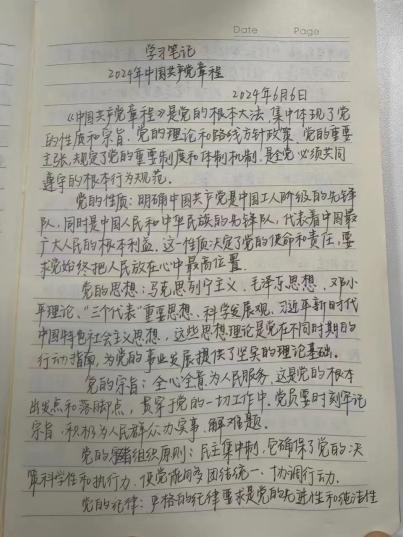 Date Page
学习笔记
2024年中国共产党章程
2024年6月6日
《中国共产党章程》是党的根本大法，集中体现了党
的性质和宗旨、党的理论和路线方针政策、党的重要
主张，规定了党的重要制度和体制机制，是全党必须共同
遵守的根本行为规范。
党的性质：明确中国共产党是中国工人阶级的先锋
队，同时是中国人民和中华民族的先锋队，代表着中国最
广大人民的根本利益。这一性质决定了党的使命和责任，要
求党始终把人民放在心中最高位置。
党的思想：马克思列宁主义、毛泽东思想、邓小
平理论、“三个代表”重要思想、科学发展观、习近平新时代
中国特色社会主义思想，这些思想理论是党在不同时期的
行动指南，为党的事业发展提供了坚实的理论基础。
党的宗旨：全心全意为人民服务，这是党的根本
出发点和落脚点，贯穿于党的一切工作中。党员要时刻牢记
宗旨，积极为人民群众办实事、解难题。
党的组织原则：民主集中制，它确保了党的决
策科学性和执行力，使党能够团结统一、协调行动。
党的纪律：严格的纪律要求是党的先进性和纯洁性